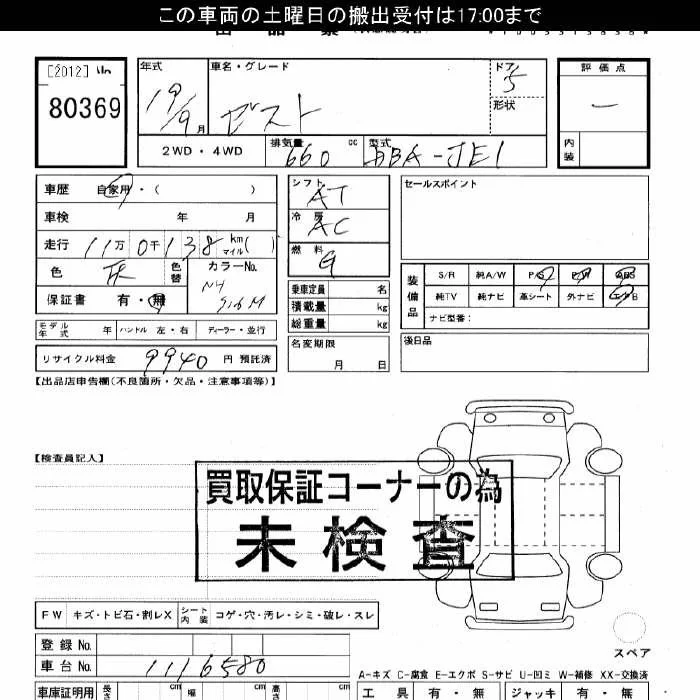 この車両の土曜日の搬出受付は17:00まで
[2012]
80369
年式 19/9 月
車名・グレード ゼスト
ドア 5
形状
評価点 ー
内装
2WD・4WD
排気量 660 cc
型式 DBA-JE1
車歴 自家用・( )
車検 年 月
走行 11万0千138 km マイル( )
色 灰
色替
カラーNo. NH
保証書 有・無
シフト AT
冷房 AC
燃料 G
乗車定員 名
積載量 kg
総重量 kg
セールスポイント
装備品
S/R 純A/W P/S P/W ABS
純TV 純ナビ 革シート 外ナビ
ナビ型番:
モデル年式 年 ハンドル 左・右 ディーラー・並行
リサイクル料金 9940 円 預託済
名変期限 月 日
後日品
【出品店申告欄(不良箇所・欠品・注意事項等)】
【検査員記入】
買取保証コーナーの為
未検査
FW キズ・トビ石・割レX シート内装 コゲ・穴・汚レ・シミ・破レ・スレ
登録No.
車台No. 1116580
スペア
A-キズ C-腐食 E-エクボ S-サビ U-凹ミ W-補修 XX-交換済
車庫証明用 長さ cm 幅 cm 高さ cm
工具 有・無 ジャッキ 有・無